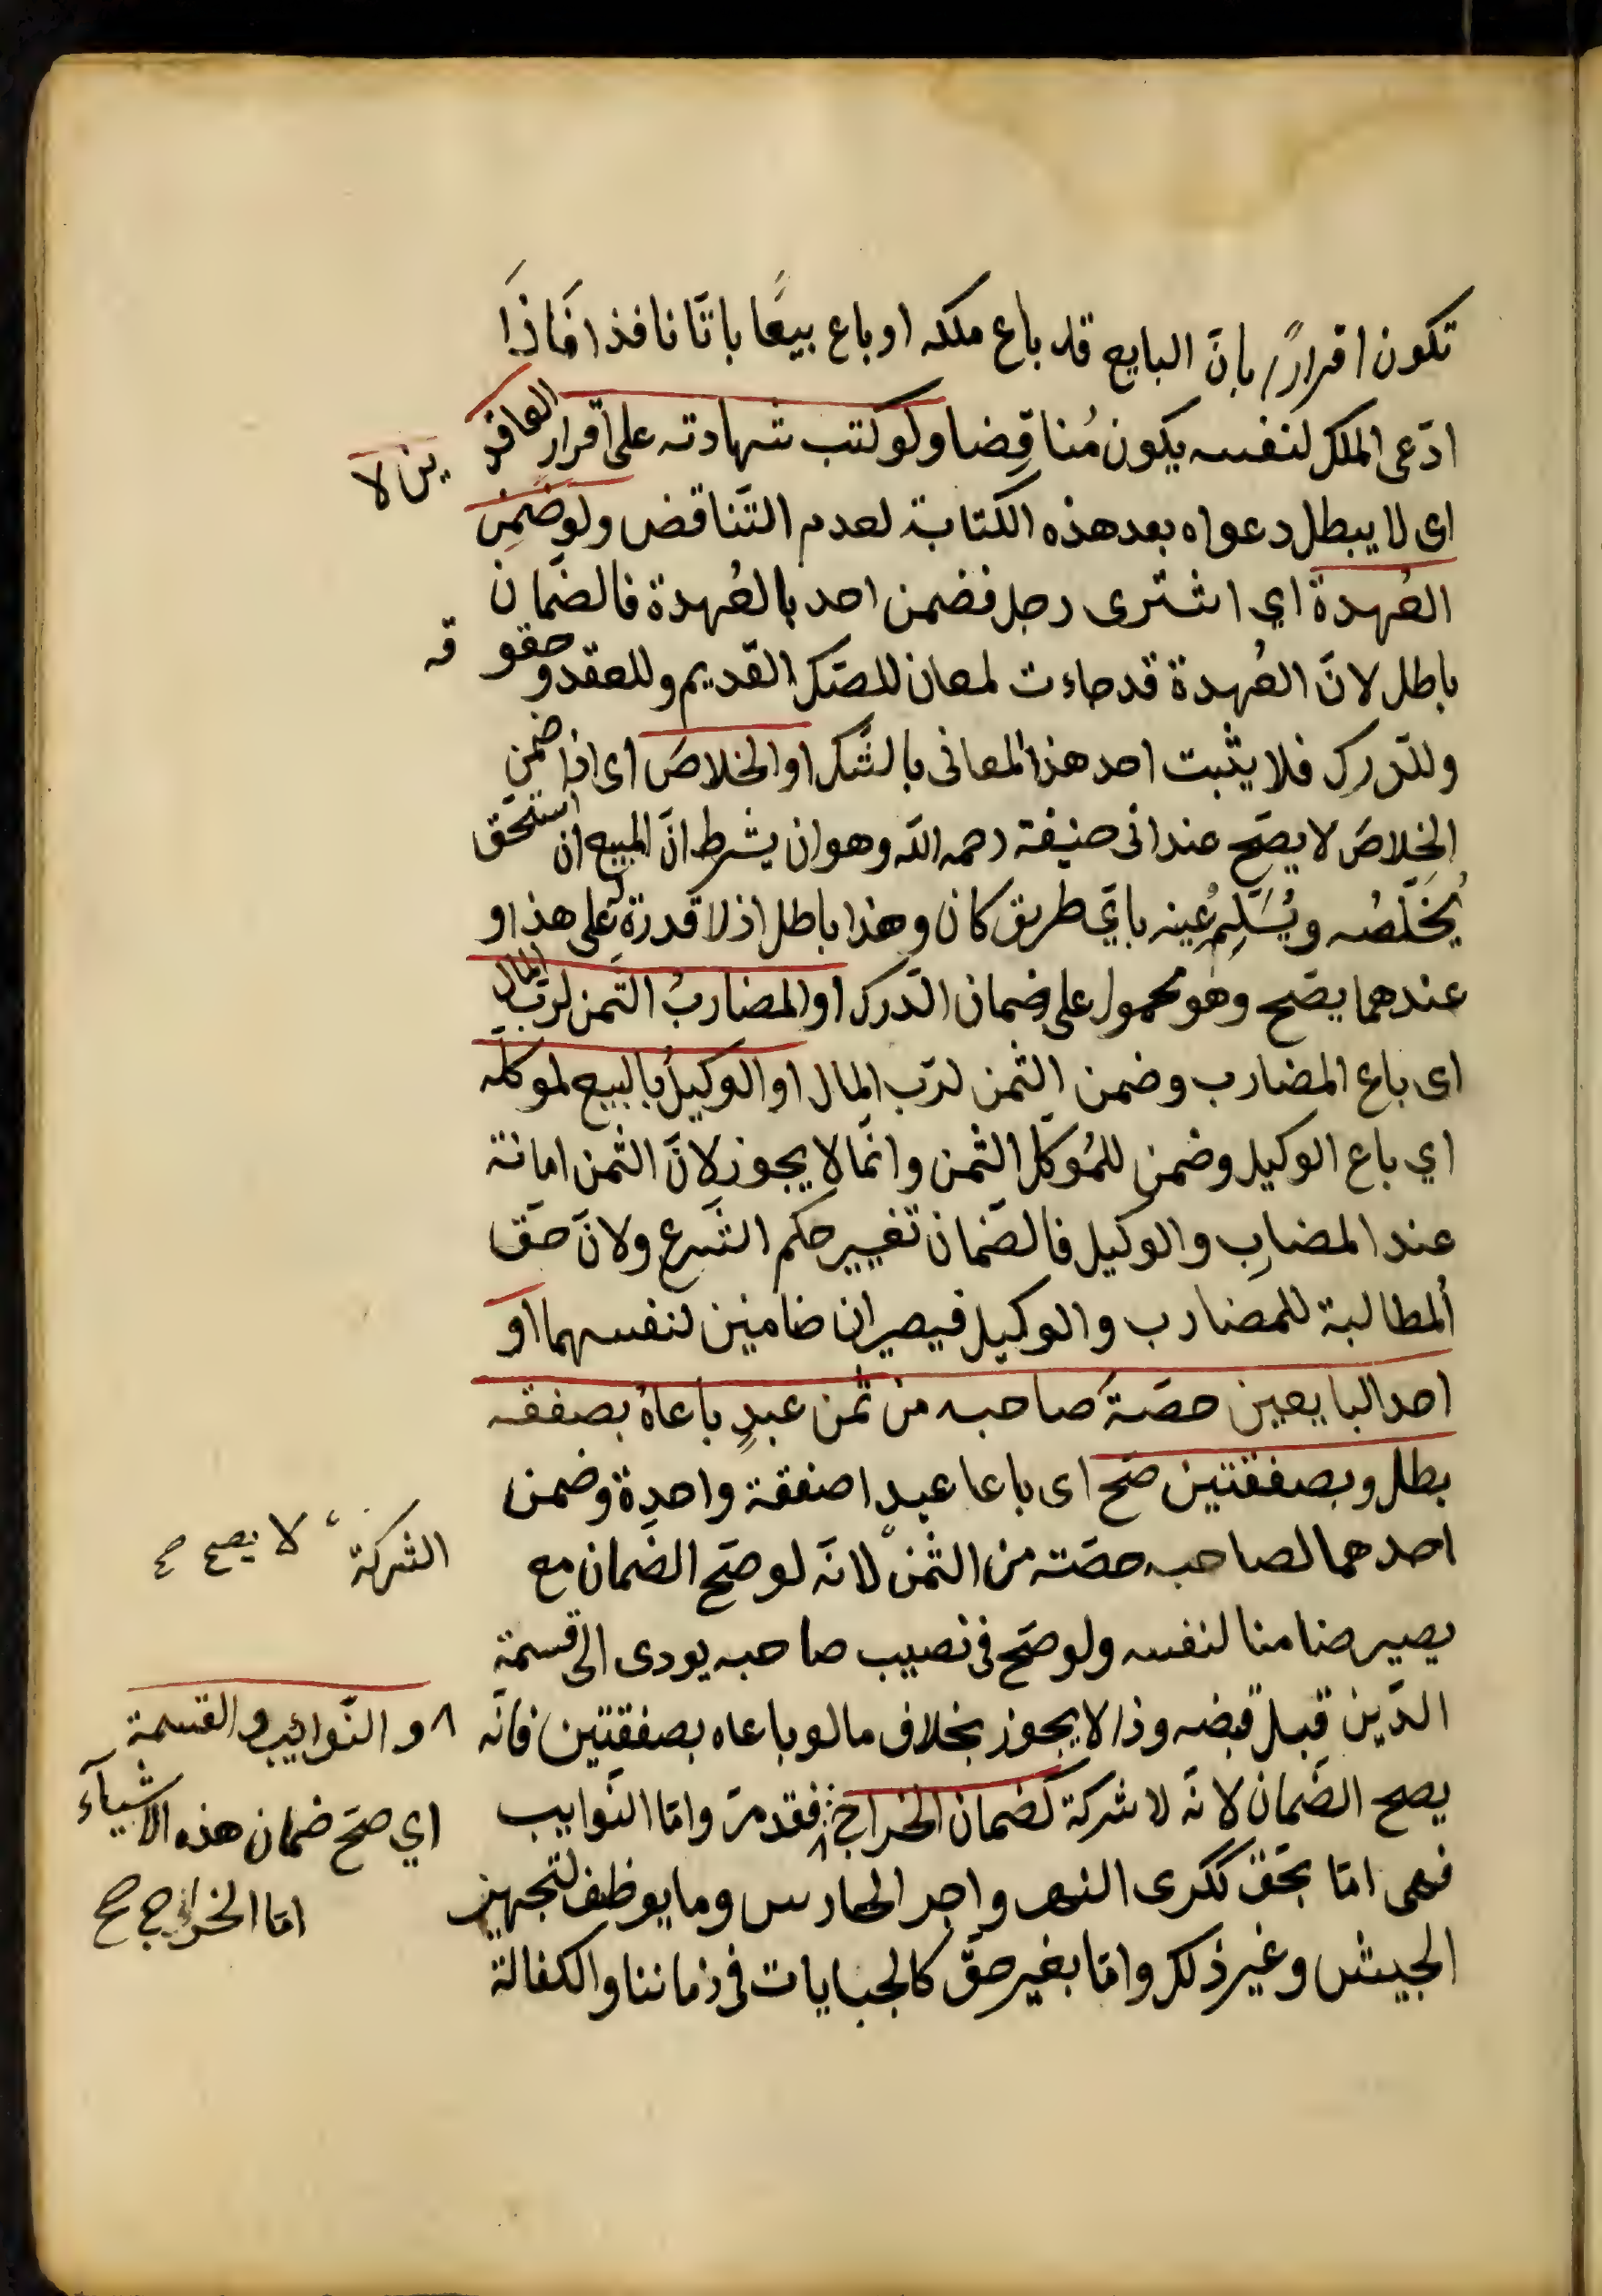 تكون اقرارًا بانّ البايع قد باع ملكه او باع بيعًا باتّا نافذا فَاذَا
ادّعى الملك لنفسه يكون مُناقِضا ولو كتب شهادته على اقرار العاقد
ين لا
اى لا يبطل دعواه بعد هذه الكتابة لعدم التّناقض ولو ضَمِن
العُهدة اي اشترى رجل فضمن احد بالعُهدة فالضّمان
باطل لانّ العُهدة قد جاءت لمعان للصّك القديم وللعقد وحقو
قه
وللدّرك فلا يثبت احد هذ المعانى بالشّك او الخلاصَ اى اذا ضمن
الخِلاصَ لا يصحّ عند ابى حنيفة رحمه اللّه وهو ان يشرط انّ المبيع ان استحقّ
يُخَلّصُه ويُسَلّم عينه بايّ طريق كان وهذا باطل اذ لا قدرة له على هذا و
عندهما يصحّ وهو محمول على ضمان الدّرك او المضاربُ الثّمن لربّ المال
اى باع المضارب وضمن الثّمن لربّ المال او الوكيلُ بالبيع لموكّله
اي باع الوكيل وضمن للمُوكّل الثّمن وانّما لا يجوز لانّ الثّمن امانة
عند المضارِب والوكيل فالضّمان تغيير حكم الشّرع ولانّ حقّ
المطالبة للمضارب والوكيل فيصيران ضامنين لنفسهما او
احد البايعين حصّةَ صاحبه من ثمن عبدٍ باعاهُ بصفقه
بطل وبصفقتين صحّ اى باعا عبدا صفقة واحدة وضمن
احدهما لصاحبه حصّته من الثّمن لانّه لو صحّ الضّمان مع
الشركة
لا يصح صح
يصير ضامنا لنفسه ولو صحّ فى نصيب صاحبه يودى الى قسمة
الدّين قبل قبضه وذا لا يجوز بخلاف ما لو باعاه بصفقتين فانّه
يصح الضّمان لانّه لا شركة كضمان الخراج فقد مرّ وامّا النّوايب
والنّوائب والقسمة
اي صحّ ضمان هذه الاشيآء
امّا الخراج صح
فهى امّا بحقّ ككرى النهر واجر الحارس وما يوظف لتجهيز
الجيش وغير ذلك وامّا بغير حقّ كالجبايات فى زماننا والكفالة